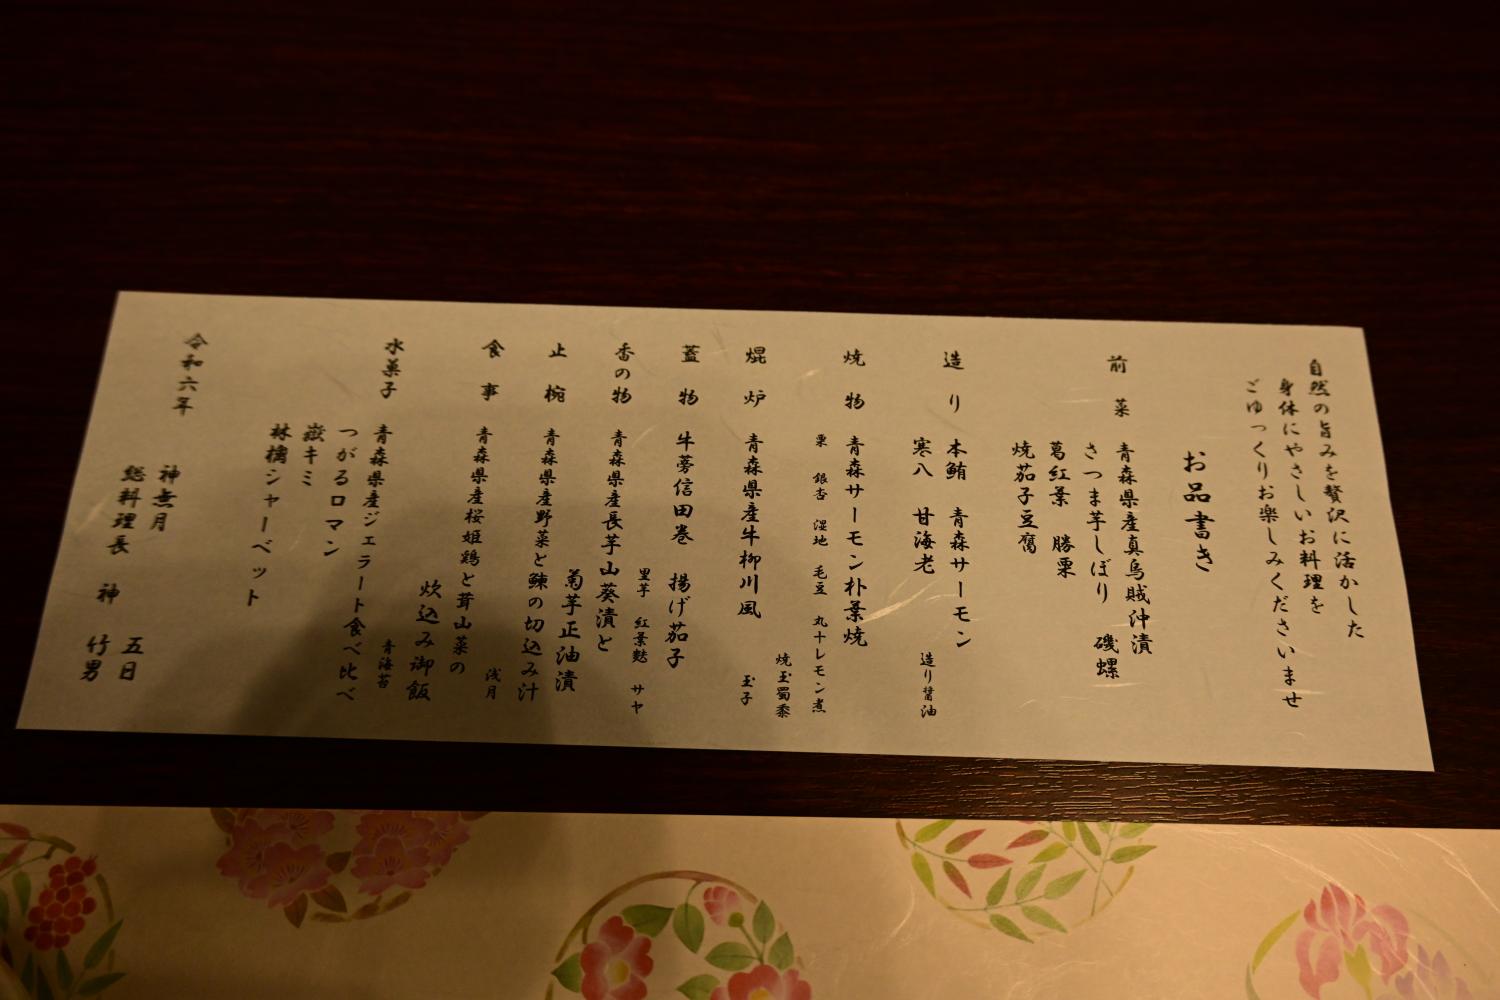 自然の旨みを贅沢に活かした
身体にやさしいお料理を
ごゆっくりお楽しみくださいませ
お品書き
前菜 青森県産真烏賊沖漬
さつま芋しぼり 磯螺
葛紅葉 勝栗
焼茄子豆腐
造り 本鮪 青森サーモン
寒八 甘海老 造り醤油
焼物 青森サーモン朴葉焼
栗 銀杏 湿地 毛豆 丸十レモン煮
焼玉蜀黍
焜炉 青森県産牛柳川風 玉子
蓋物 牛蒡信田巻 揚げ茄子
里芋 紅葉麩 サヤ
香の物 青森県産長芋山葵漬と
菊芋正油漬
止椀 青森県産野菜と鰊の切込み汁
浅月
食事 青森県産桜姫鶏と茸山菜の
炊込み御飯
青海苔
水菓子 青森県産ジェラート食べ比べ
つがるロマン
嶽キミ
林檎シャーベット
令和六年
神無月 五日
総料理長 神 竹男